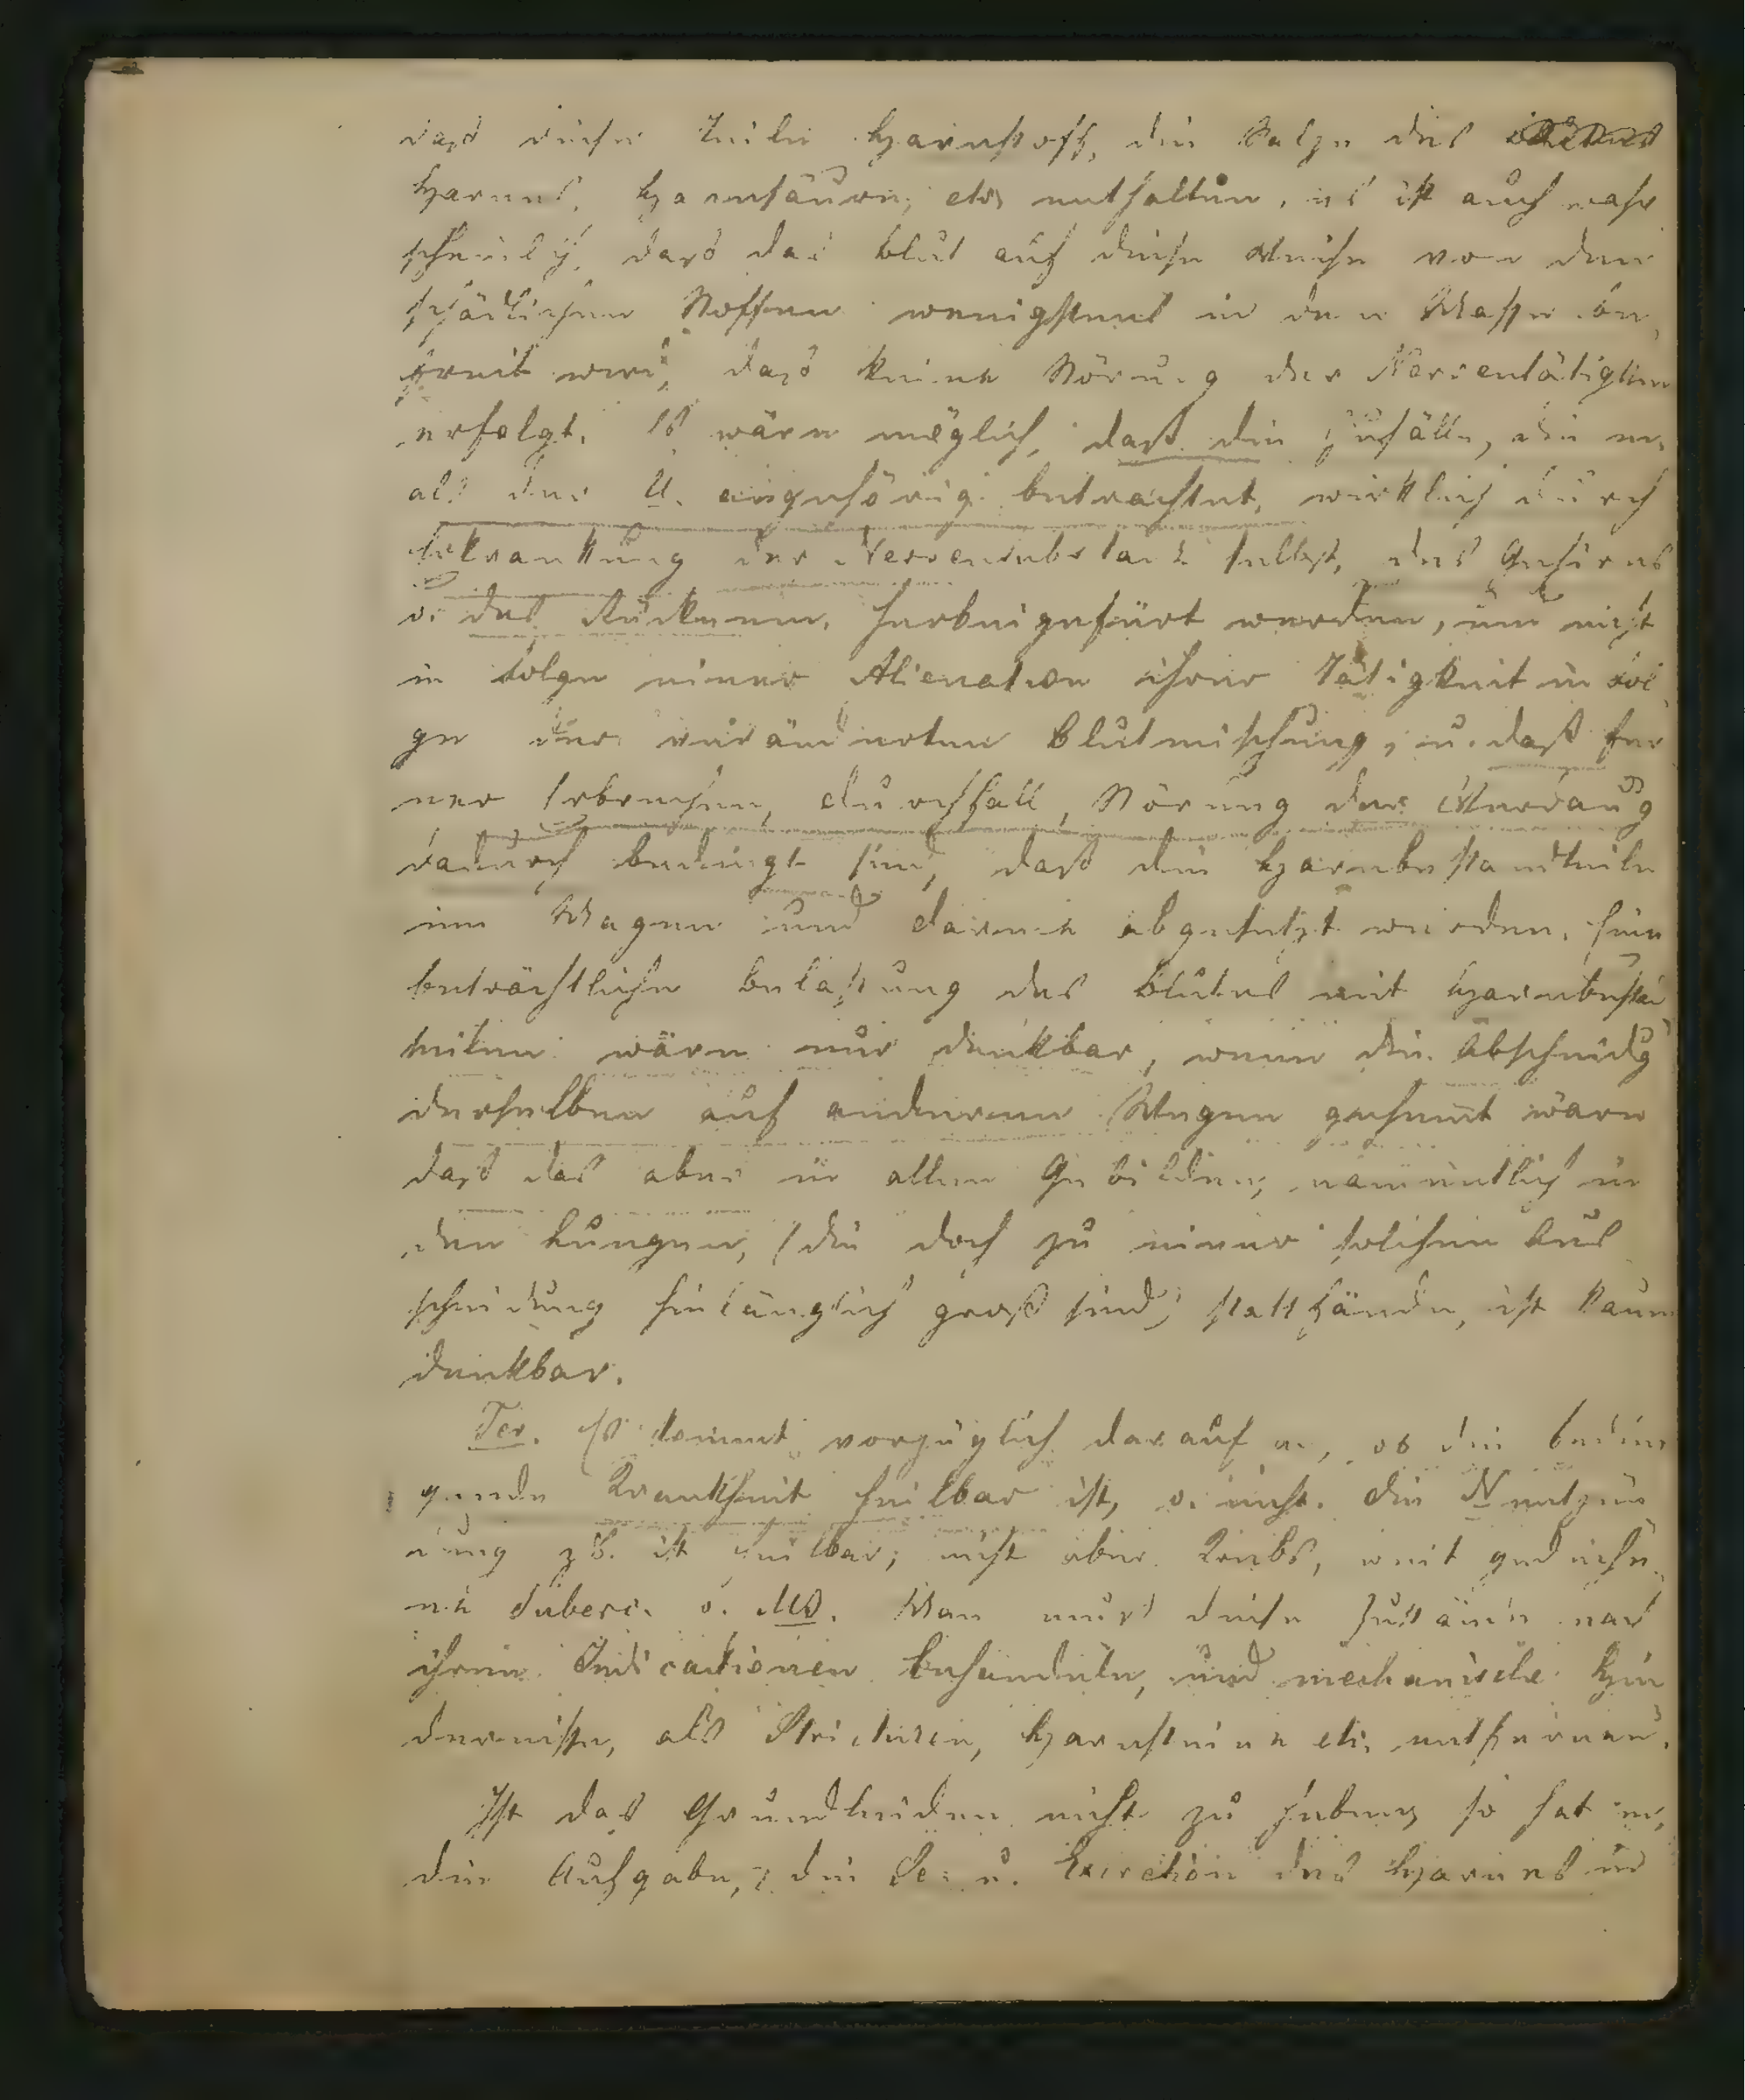 dasß diese Teile Harnstoff, die Salze des
Harnes, Harnsäure, etc enthalten, es ist auch wahr
scheinlich, dasß das Blut auf diese Weise von den
schädlichen Stoffen wenigstens in dem Masse be
freit wird, dasß keine Störung der Nerventätigkeit
erfolgt. Es wäre möglich, daß die Zufälle, die m.
als der U. angehörig betrachtet, wirklich durch
Erkrankung der Nervensubstanz selbst, des Gehirnes
o. des Rückenm. herbeigefürt werden, und nicht
in Folge einer Alienation ihrer Tätigkeit in Fol
ge der veränderten Blutmischung, u. daß fer
ner Erbrechen, Durchfall, Störung der Verdauug
dadurch bedingt sind, dasß die Harnbestandteile
im Magen und Darme abgesetzt werden. Eine
beträchtliche Belastung des Blutes mit Harnbestan
teilen wäre nur denkbar, wenn die Abscheidug
derselben auf anderem Wegen gehemt wäre
dasß das aber in allen Gebilden, namentlich in
den Lungen, (die doch zu einer solchen Aus
scheidung hinlänglich groß sind) stattfände, ist kaum
denkbar.
Ter. Es kommt vorzüglich darauf an, ob die bedin
gende Krankheit heilbar ist, o. nicht. Die N entzün
dung zB. ist heilbar; nicht aber Krebs, weit gediehe
ne Tuberc. o. MB. Man muss diese Zustände nach
ihren Indicationen behandeln, und mechanische Hin
dernisse, als Stricturen, Harnsteine etc. entfernen.
Ist das Grundleiden nicht zu heben, so hat m.
die Aufgabe, die Se- u. Excretion des Harnes in